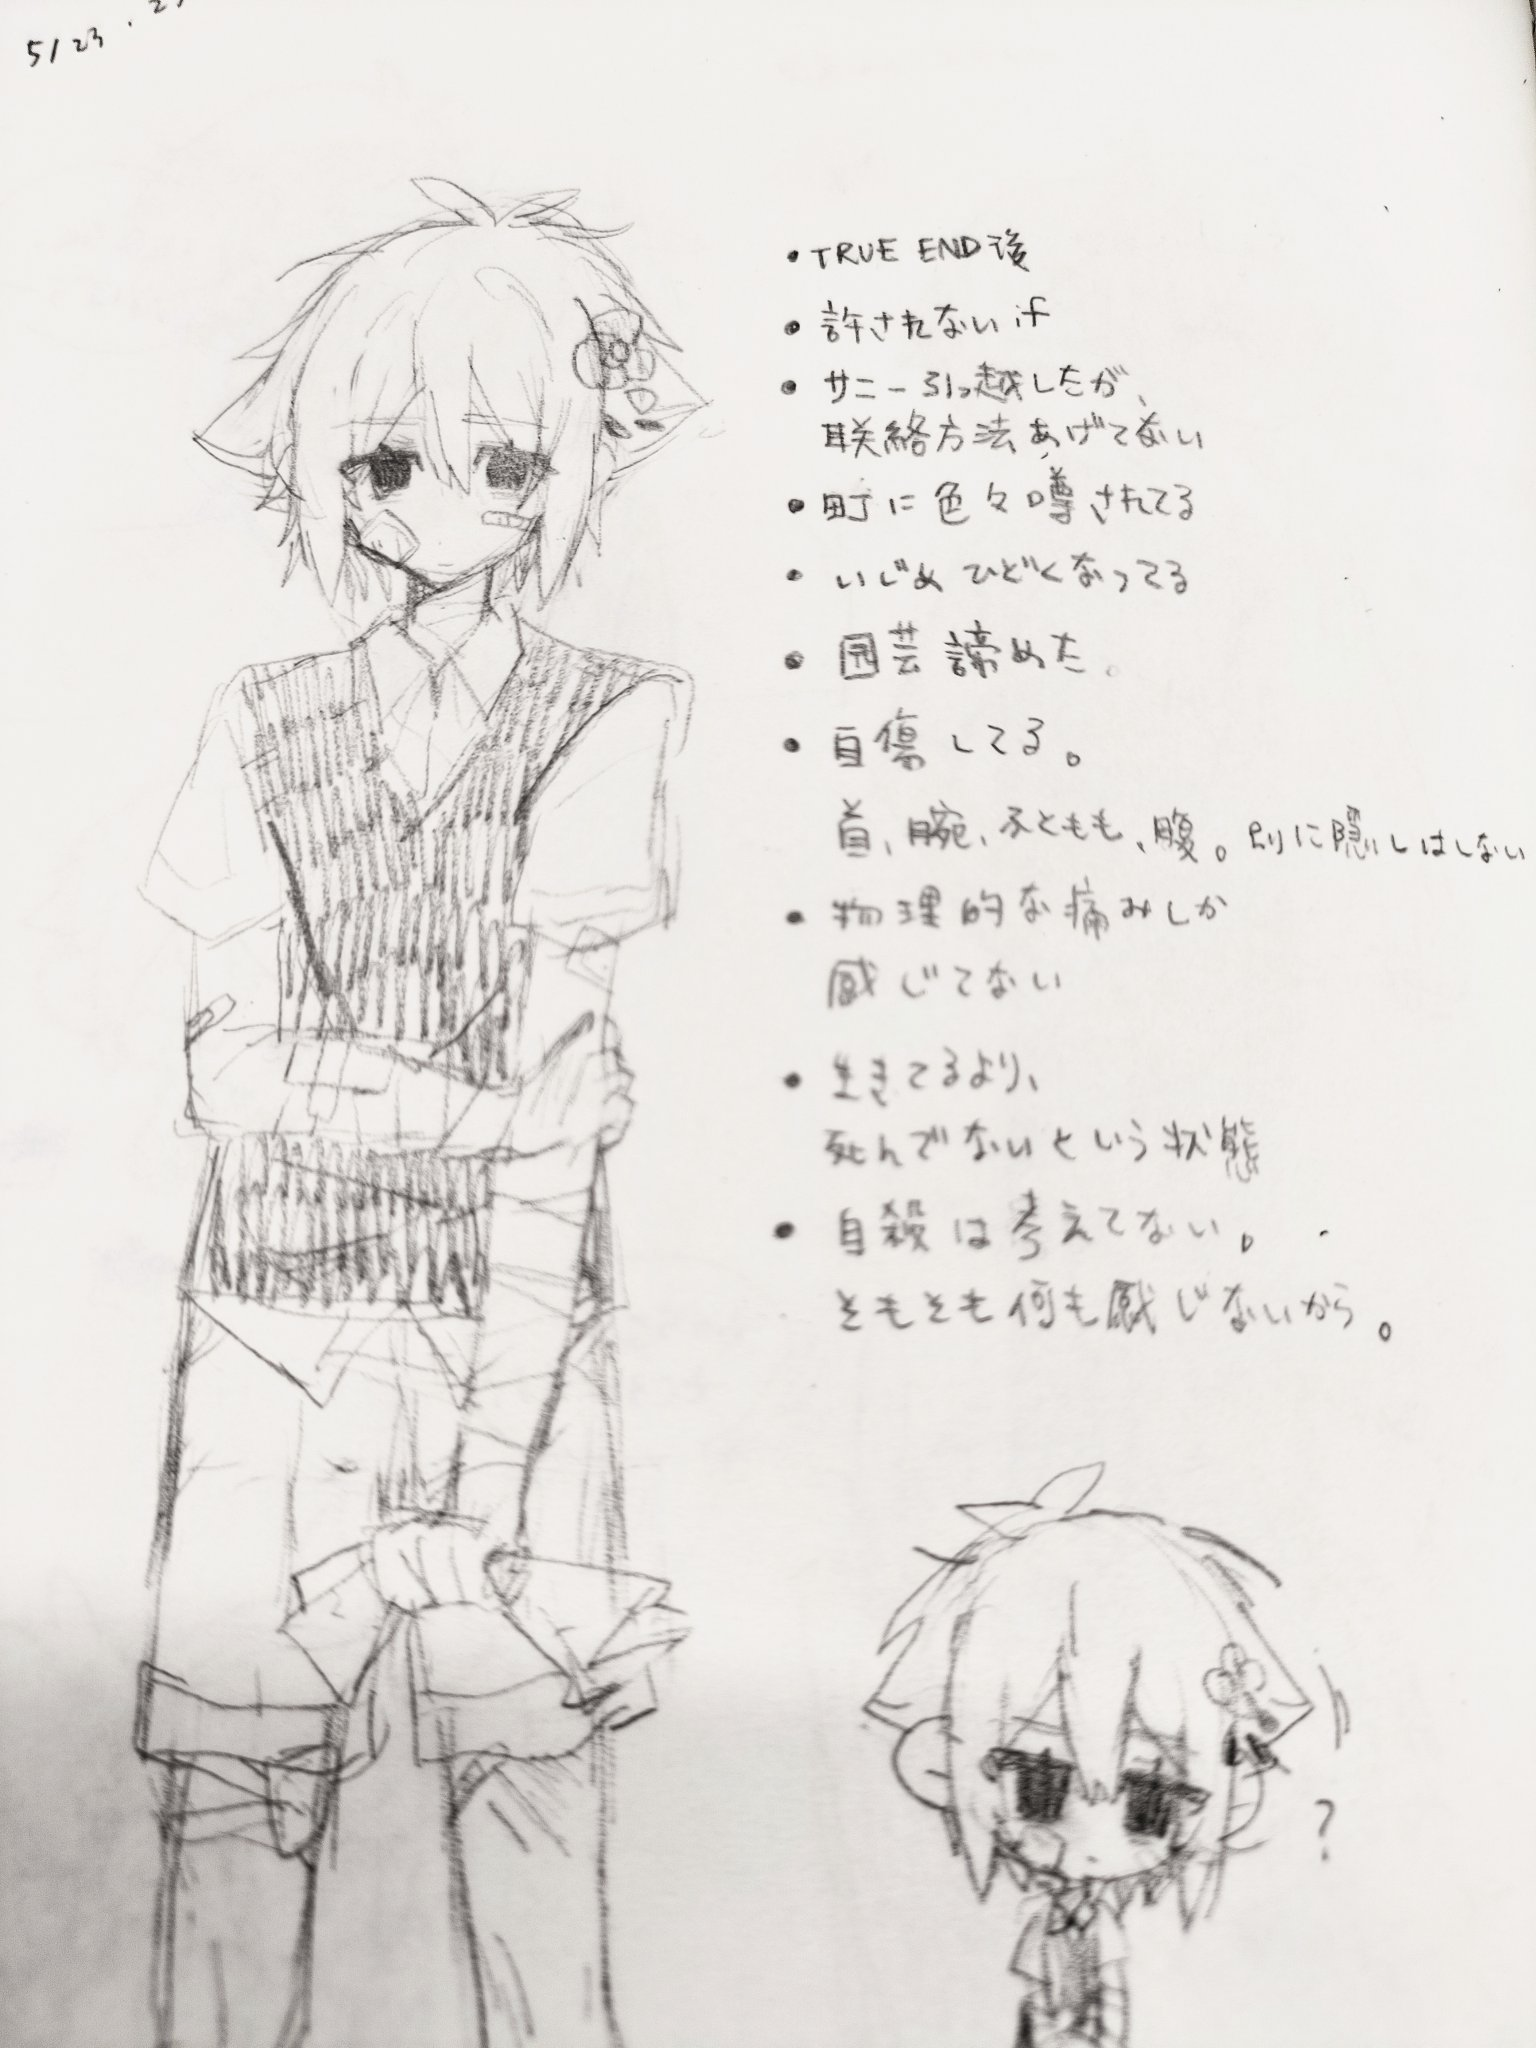 5/23
・TRUE END後
・許されないif
・サニー引っ越したが、
联絡方法あげてない
・町に色々噂されてる
・いじめひどくなってる
・园芸諦めた。
・自傷してる。
首、腕、ふともも、腹。別に隠しはしない
・物理的な痛みしか
感じてない
・生きてるより、
死んでないという状態
・自殺は考えてない。
そもそも何も感じないから。
?